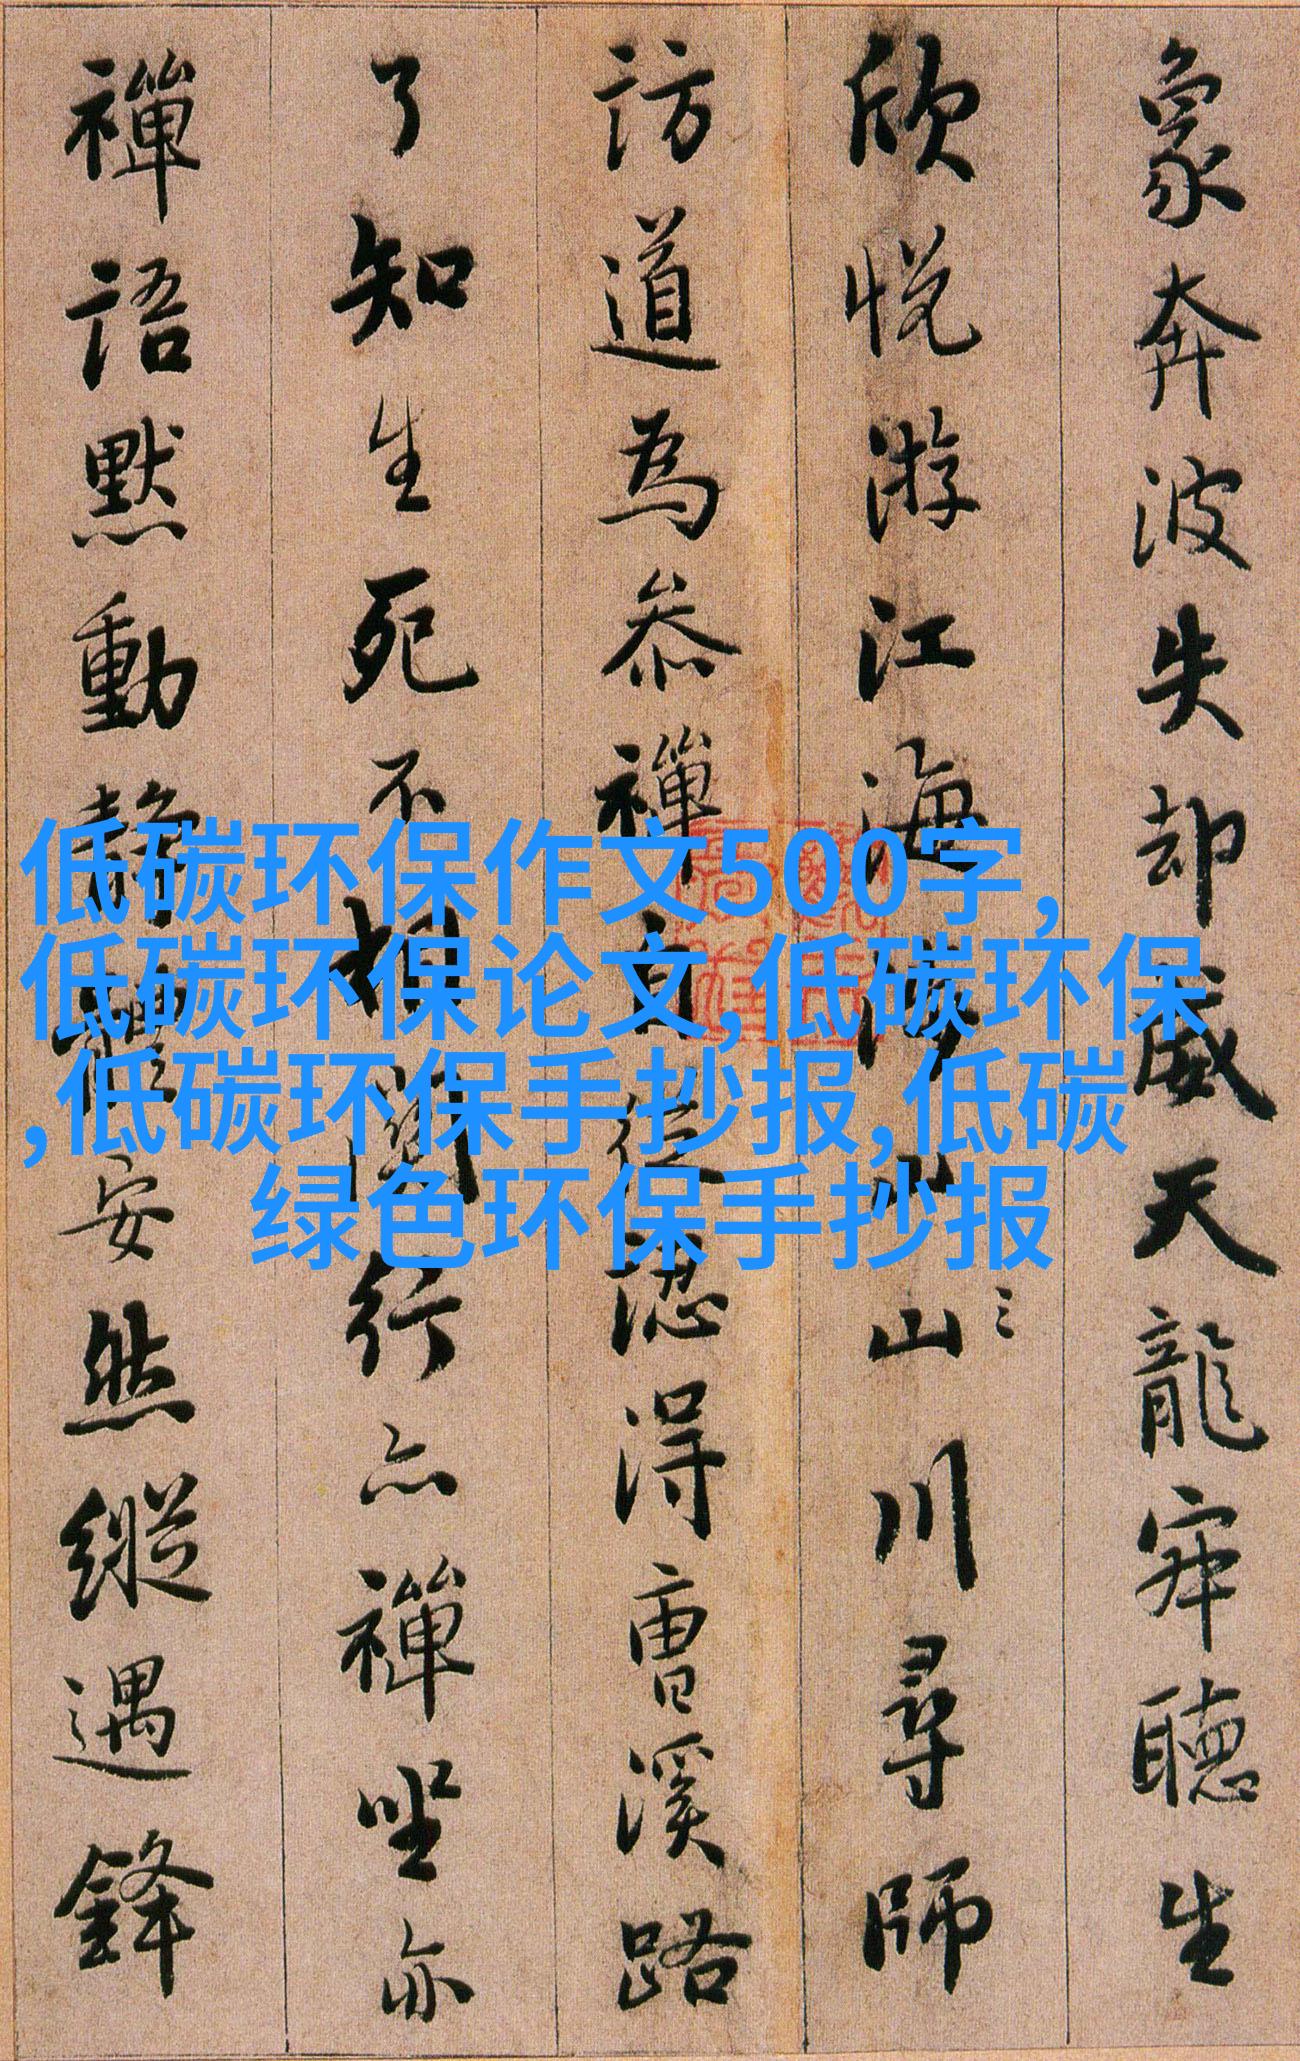 象奔波失却威天龍寂聽生
欣悅游江海涉山山川尋師
訪道為叅禪自從認得曹溪路
了知生死不相關行亦禪坐亦
禪語默動靜體安然縱遇鋒
低碳环保作文500字,
低碳环保论文,低碳环保
,低碳环保手抄报,低碳
绿色环保手抄报